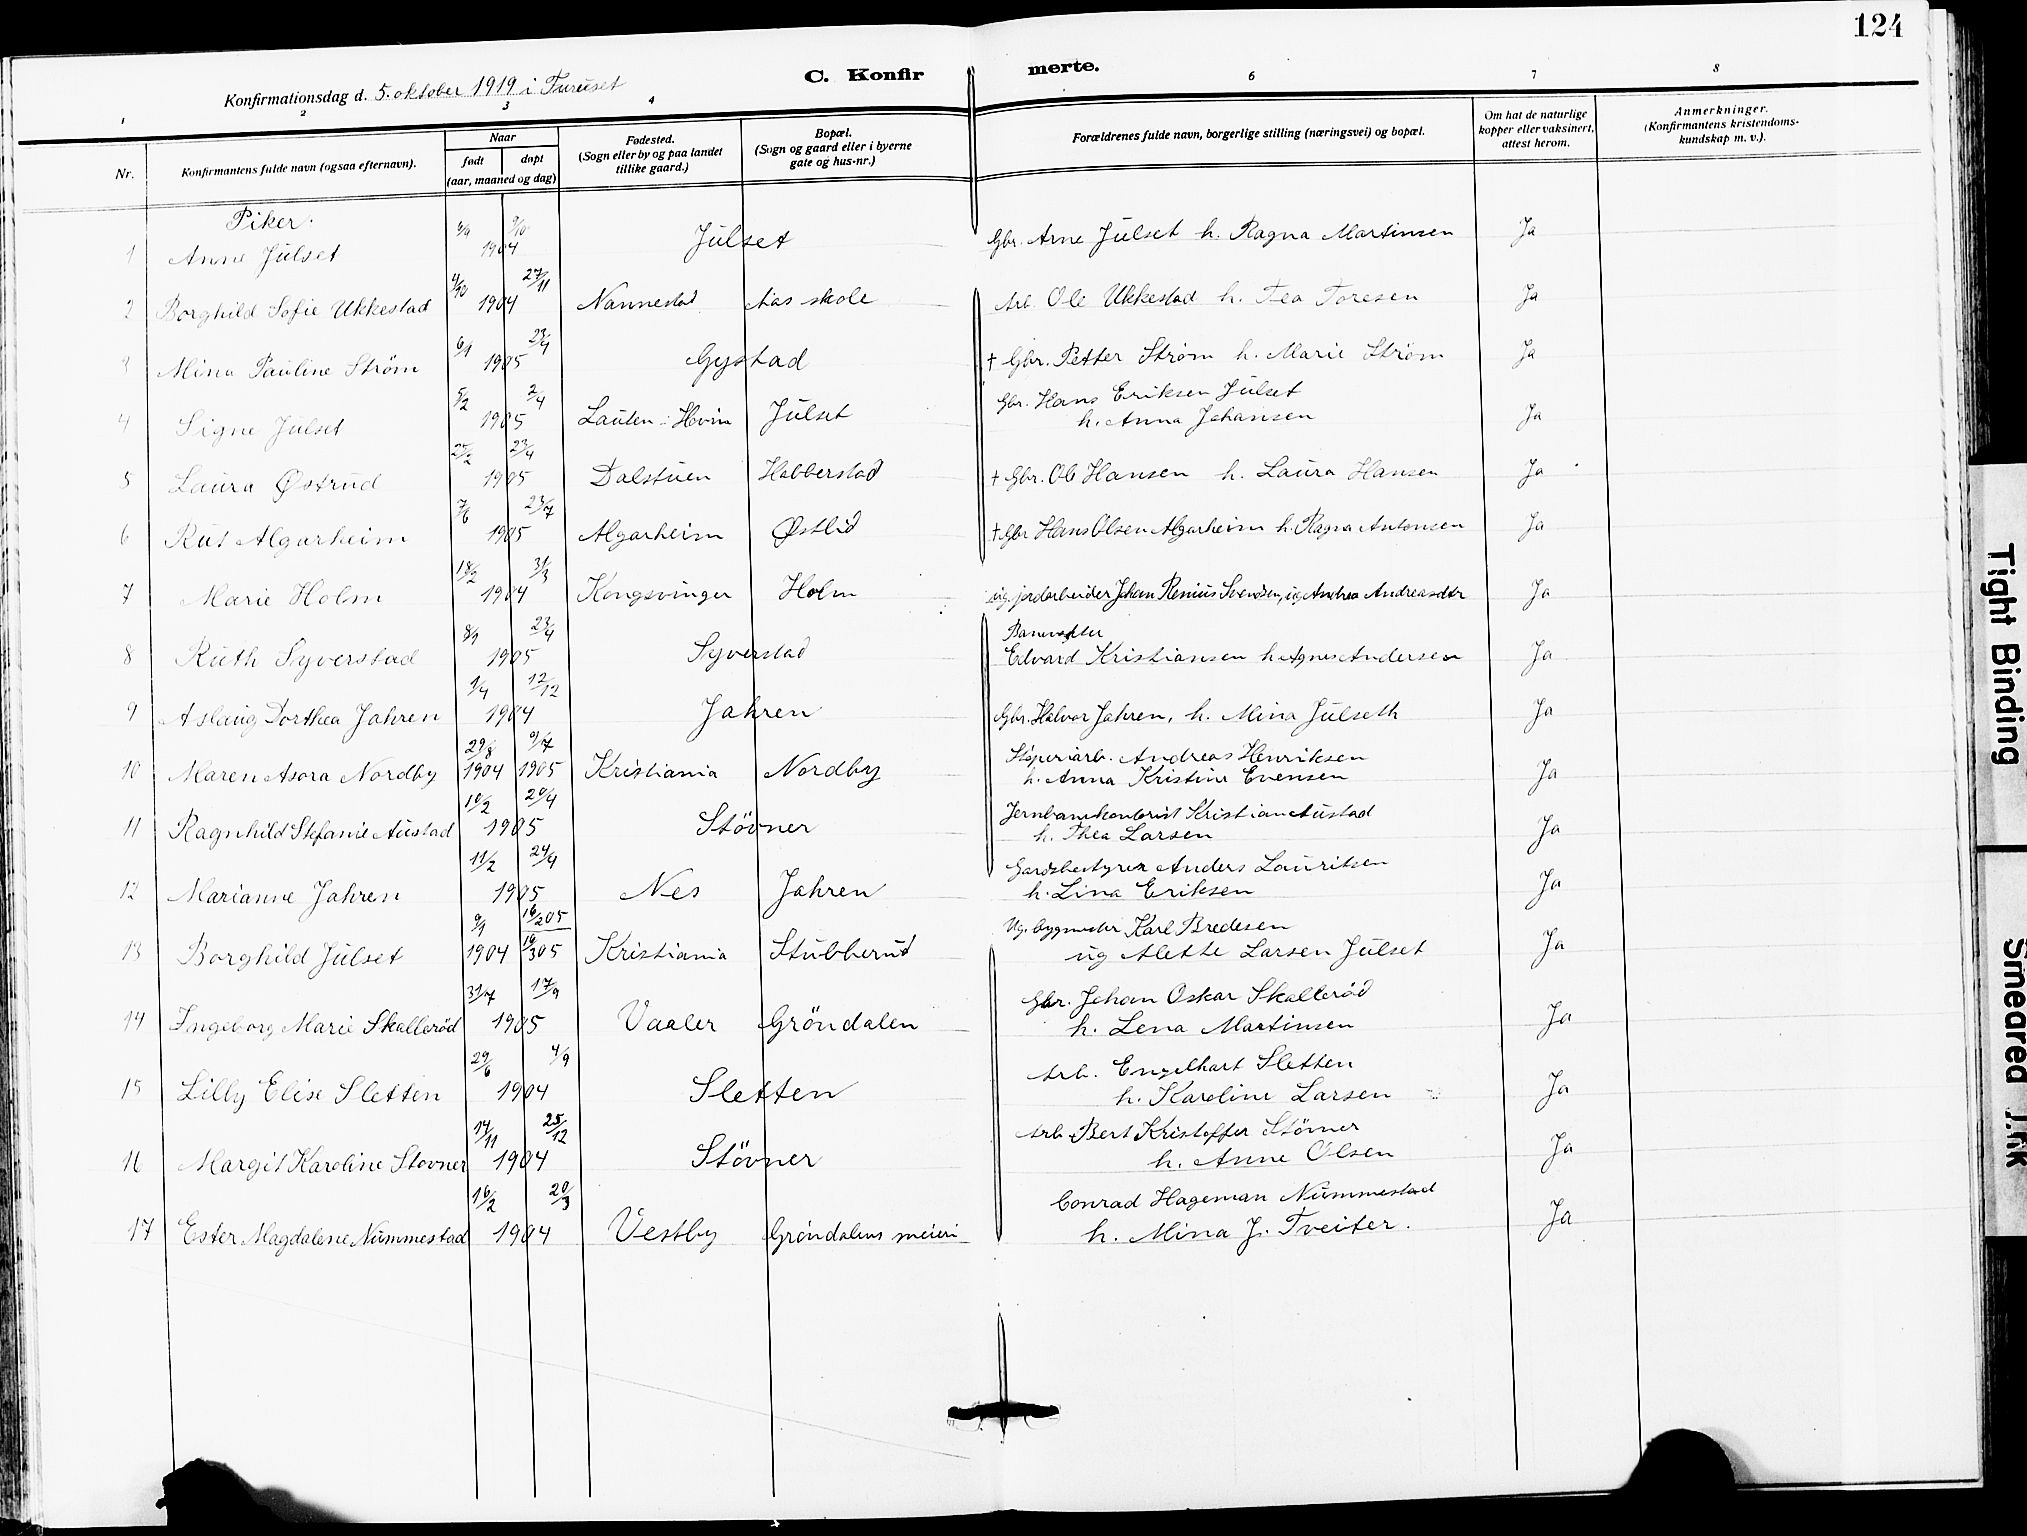 124
C. Konfirmerte.
Konfirmationsdag d. 5. oktober 1919 i Furuset
1 2 3 4 6 7 8
Nr.
Konfirmantens fulde navn (ogsaa efternavn).
Naar
født døpt
(aar, maaned og dag)
Fødested.
(Sogn eller by og paa landet
tillike gaard.)
Bopæl.
(Sogn og gaard eller i byerne
gate og hus-nr.)
Forældrenes fulde navn, borgerlige stilling (næringsvei) og bopæl.
Om hat de naturlige
kopper eller vaksinert,
attest herom.
Anmerkninger.
(Konfirmantens kristendoms-
kundskap m. v.).
Piker:
1 Anne Julset 9/10 1904 Julset Gbr. Arne Julset h. Ragna Martinsen Ja
2 Borghild Sofie Ukkestad 4/10 27/11 1904 Nannestad Aas skole Arb. Ole Ukkestad h. Tea Toresen Ja
3 Mina Pauline Strøm 6/1 23/4 1905 Gystad † Gbr. Petter Strøm h. Marie Strøm Ja
4 Signe Julset 5/2 2/4 1905 Lauten: Hvin Julset Gbr. Hans Eriksen Julset
h. Anna Johansen Ja
5 Laura Østrud 25/2 23/4 1905 Dalstuen Habberstad † Gbr. Ole Hansen h. Laura Hansen Ja
6 Rut Algarheim 7/6 23/7 1905 Algarheim Østlid † Gbr Hans Olsen Algarheim h. Ragna Antonsen Ja
7 Marie Holm 18/2 31/3 1904 Kongsvinger Holm ug. jordarbeider Johan Renius Svendsen, ug Andrea Andreasdtr Ja
8 Ruth Syverstad 8/1 23/4 1905 Syverstad Banevokter
Edvard Kristiansen h. Agnes Andersen Ja
9 Aslaug Dorthea Jahren 9/4 12/12 1904 Jahren Gbr. Halvor Jahren, h. Mina Julseth Ja
10 Maren Asora Nordby 29/8 1904 9/7 1905 Kristiania Nordby Støperiarb. Andreas Henriksen
h. Anna Kristine Evensen Ja
11 Ragnhild Stefanie Austad 10/2 20/4 1905 Stövner Jernbanekontorist Kristian Austad
h. Thea Larsen Ja
12 Marianne Jahren 11/2 24/4 1905 Nes Jahren Gardsbestyrer Anders Lauritsen
h. Lina Eriksen Ja
13 Borghild Julset 9/1 1904 16/2 05 19/3 05 Kristiania Stubberud Ug. bygmester Karl Bredesen
ug Alette Larsen Julset Ja
14 Ingeborg Marie Skalleröd 31/7 17/9 1905 Vaaler Gröndalen Gbr. Johan Oskar Skalleröd
h. Lena Martinsen Ja
15 Lilly Elise Sletten 29/6 4/9 1904 Sletten Arb. Engelhart Sletten
h. Karoline Larsen Ja
16 Margit Karoline Stovner 14/11 25/12 1904 Stövner Arb. Bert Kristoffer Stövner
h. Anne Olsen Ja
17 Ester Magdalene Nummestad 16/2 20/3 1904 Vestby Gröndalens meieri Conrad Hageman Nummestad
h. Mina J. Tveiter. Ja
Tight Binding
Smeared Ink